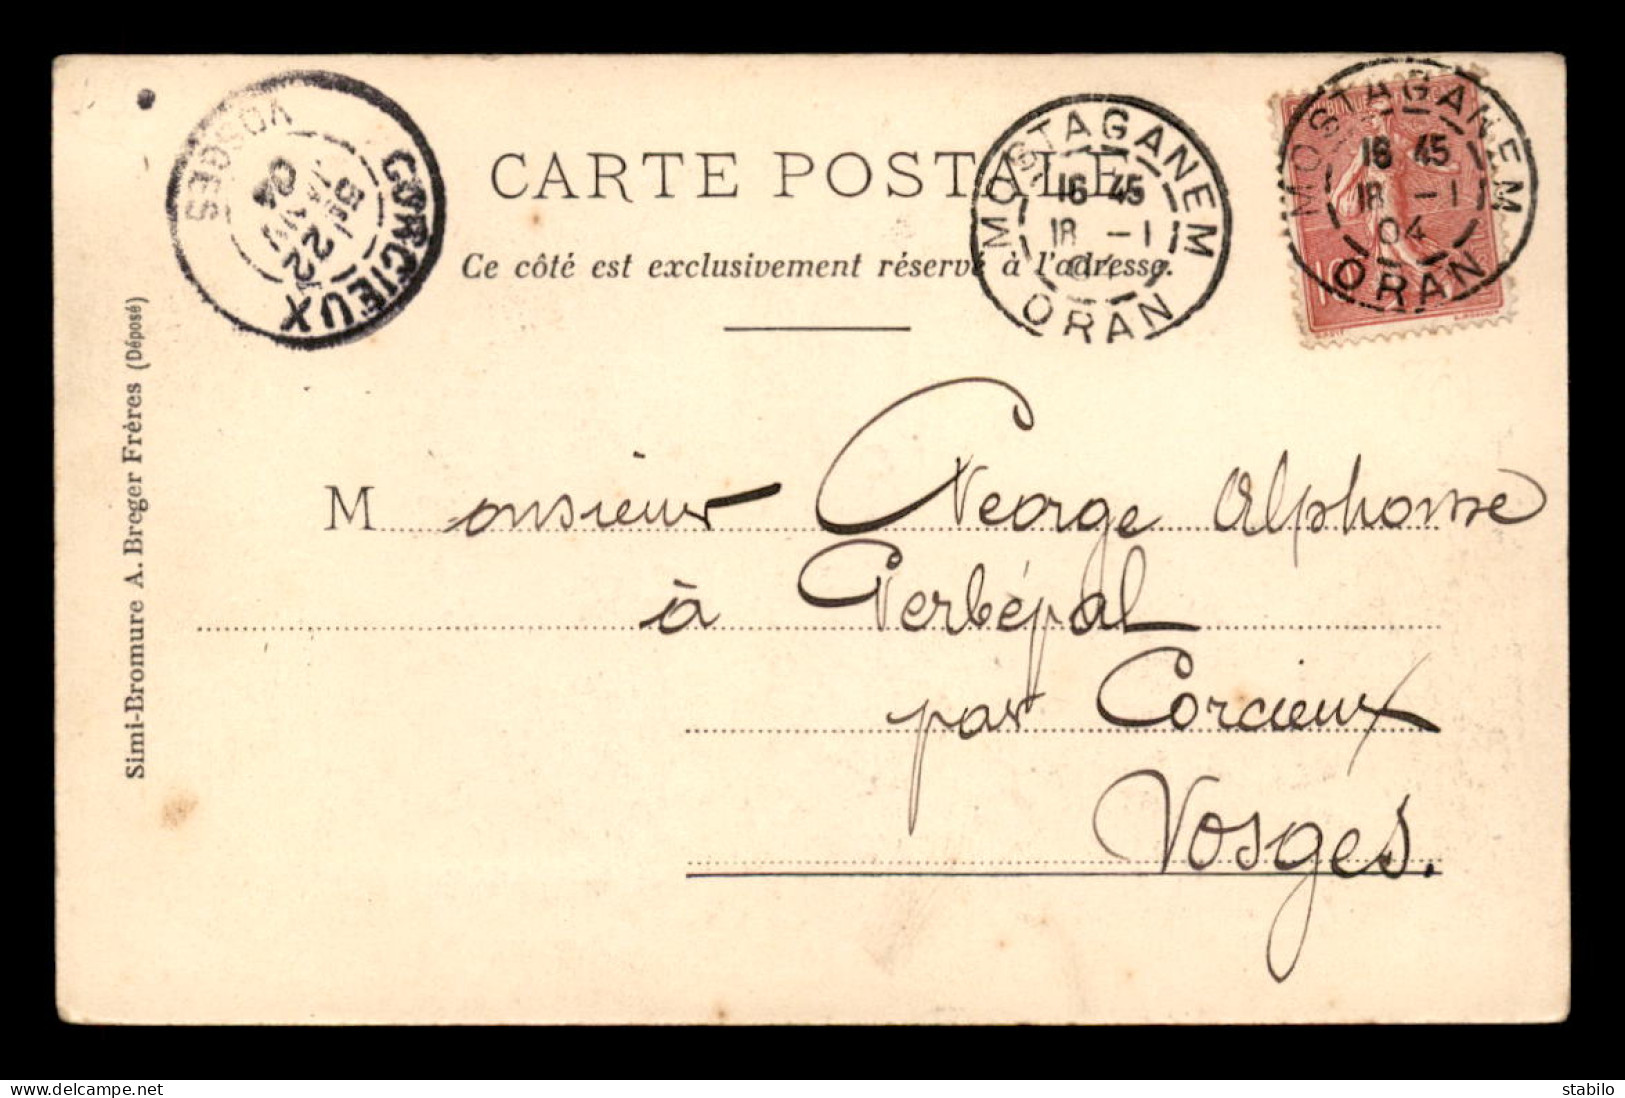 CARTE POSTALE
Ce côté est exclusivement réservé à l'adresse.
CORCIEUX
22
04
VOSGES
MOSTAGANEM
16 45
18 -1
04
ORAN
MOSTAGANEM
16 45
18 -1
04
ORAN
10
Simi-Bromure A. Breger Frères (Déposé)
Monsieur George Alphonse
à Gerbépal
par Corcieux
Vosges.
stabilo